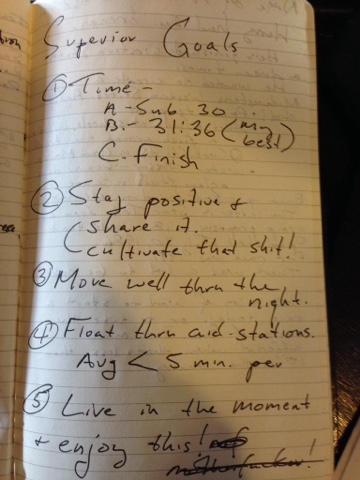 Superior Goals
① Time -
A - Sub 30
B. - 31:36 (my best)
C. Finish
② Stay positive &
(share it.
cultivate that shit!
③ Move well thru the
night.
④ Float thru aid-stations.
Avg < 5 min. per
⑤ Live in the moment
& enjoy this!
motherfucker!